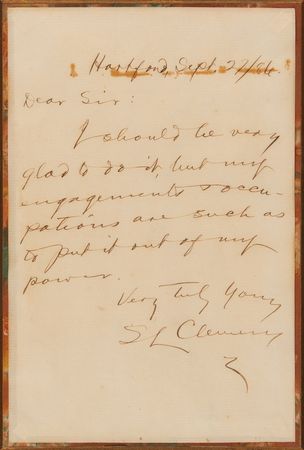 Hartford, Sept. 22/86
Dear Sir:
I should be very
glad to do it, but my
engagements & occu-
pations are such as
to put it out of my
power.
Very truly Yours
S L Clemens